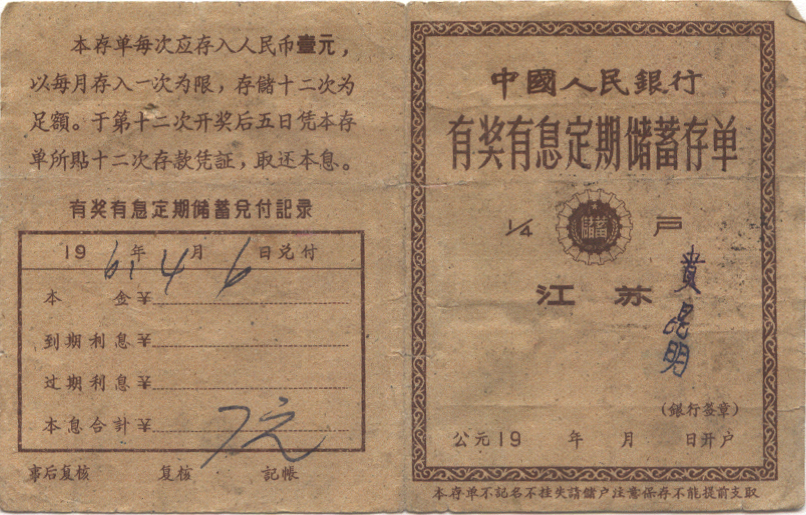 本存单每次应存入人民币壹元，
以每月存入一次为限，存储十二次为
足额。于第十二次开奖后五日凭本存
单所贴十二次存款凭証，取还本息。
有奖有息定期储蓄兑付記录
1961年4月6日兑付
本金¥
到期利息¥
过期利息¥
本息合計¥ 7元
事后复核 复核 記帳
中國人民銀行
有奖有息定期储蓄存单
1/4 储蓄 戶
江苏
黄昆明
(銀行签章)
公元19 年 月 日开户
本存单不記名不挂失請儲户注意保存不能提前支取